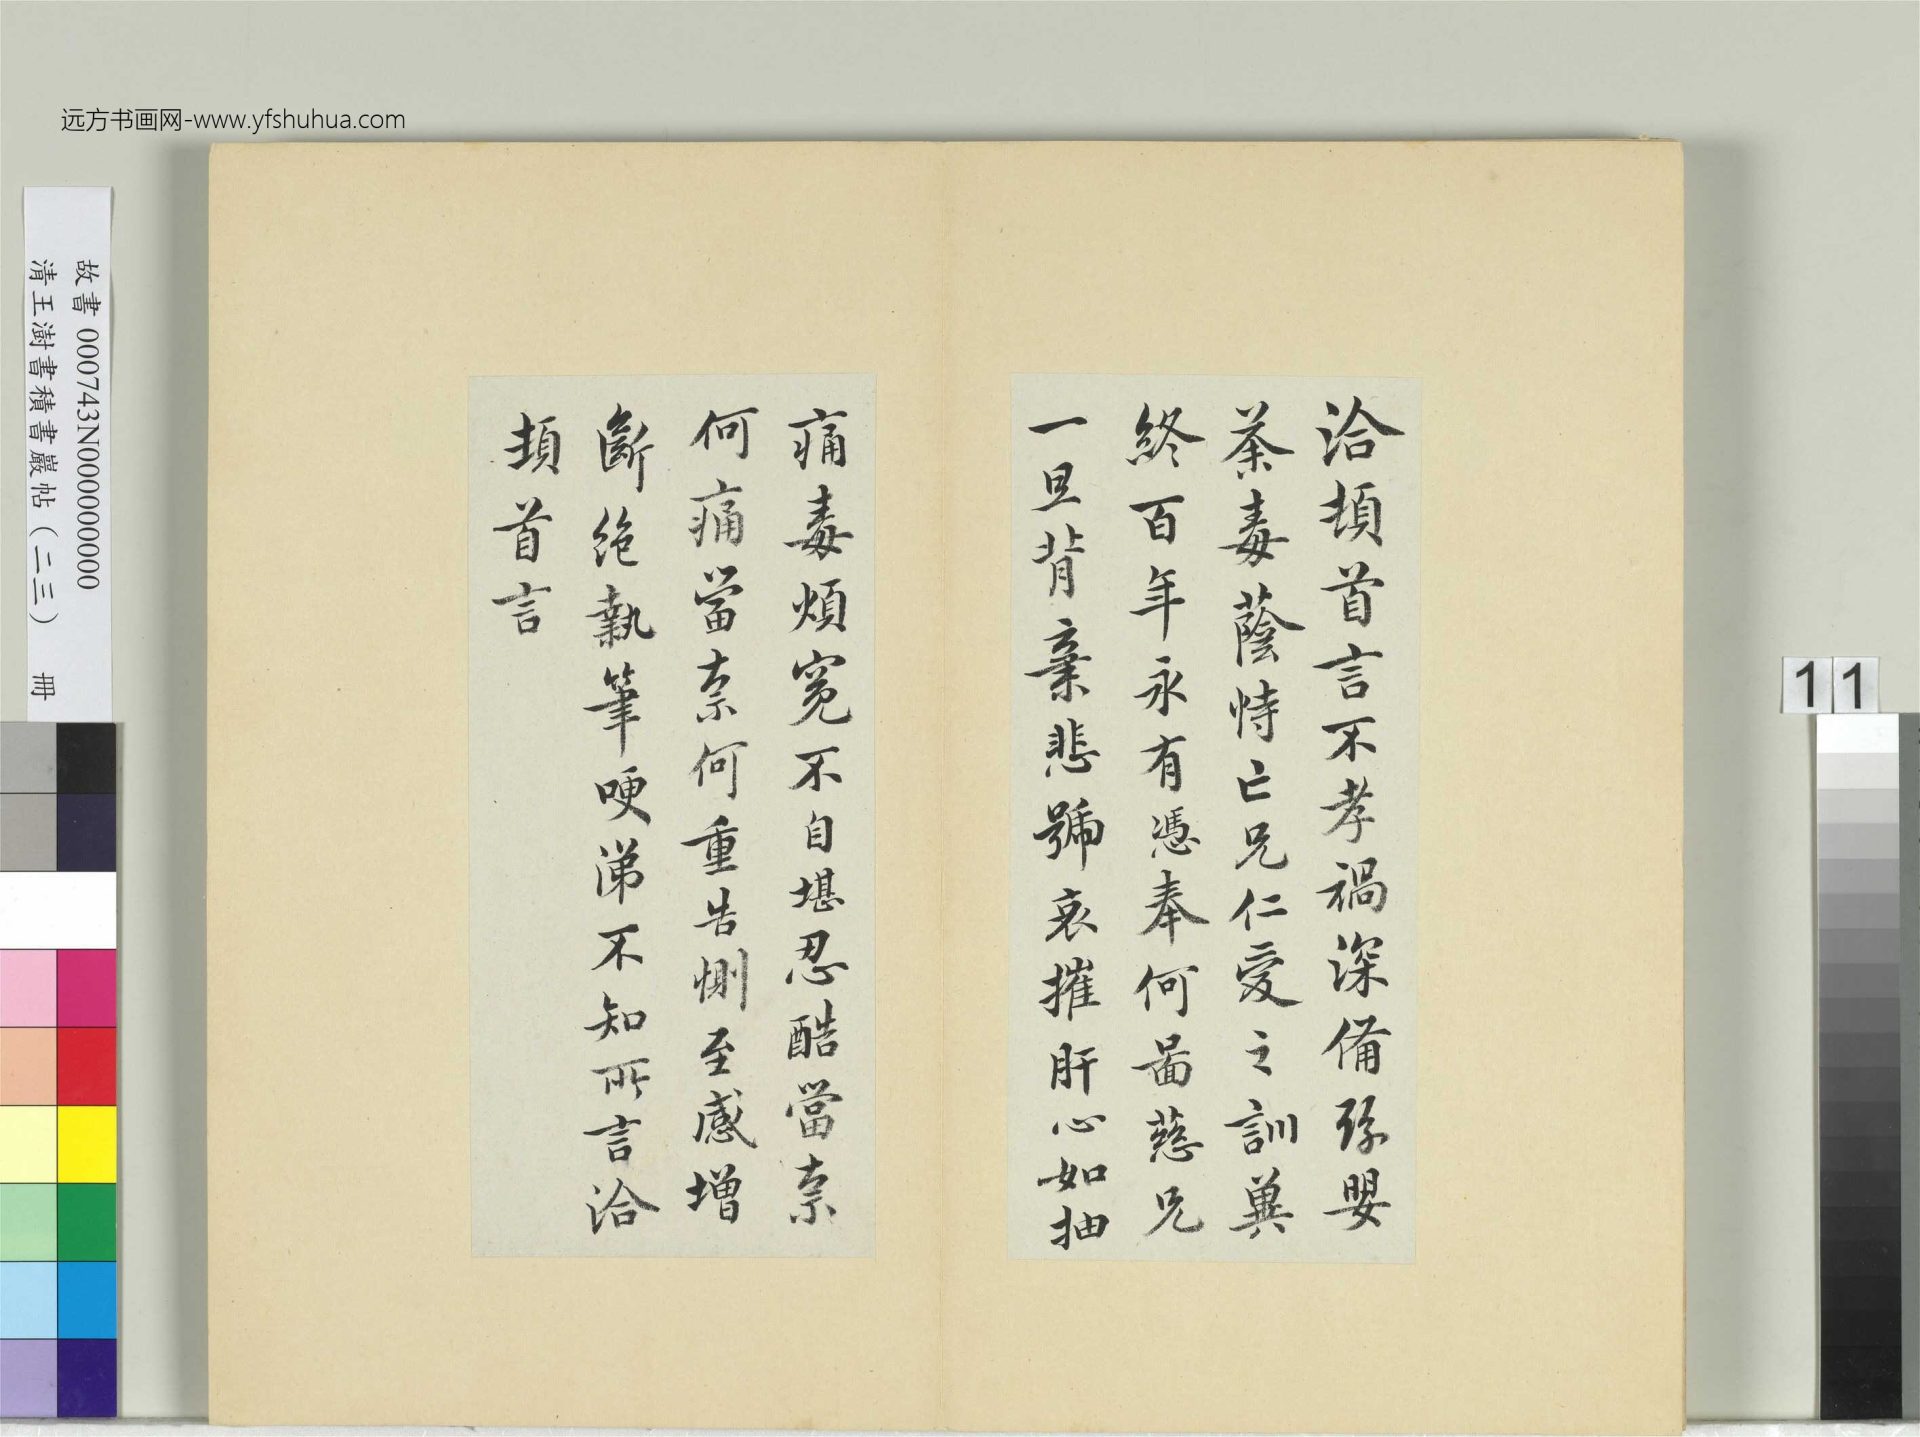 远方书画网-www.yfshuhua.com
故書 000743N000000000
清王澍書積書巖帖（二三） 冊
11
洽頓首言不孝禍深備豫嬰
荼毒蔭恃亡兄仁愛之訓冀
終百年永有憑奉何啚慈兄
一旦背棄悲號哀摧肝心如抽
痛毒煩冤不自堪忍酷當柰
何痛當柰何重告惻至感增
斷絶執筆哽涕不知所言洽
頓首言